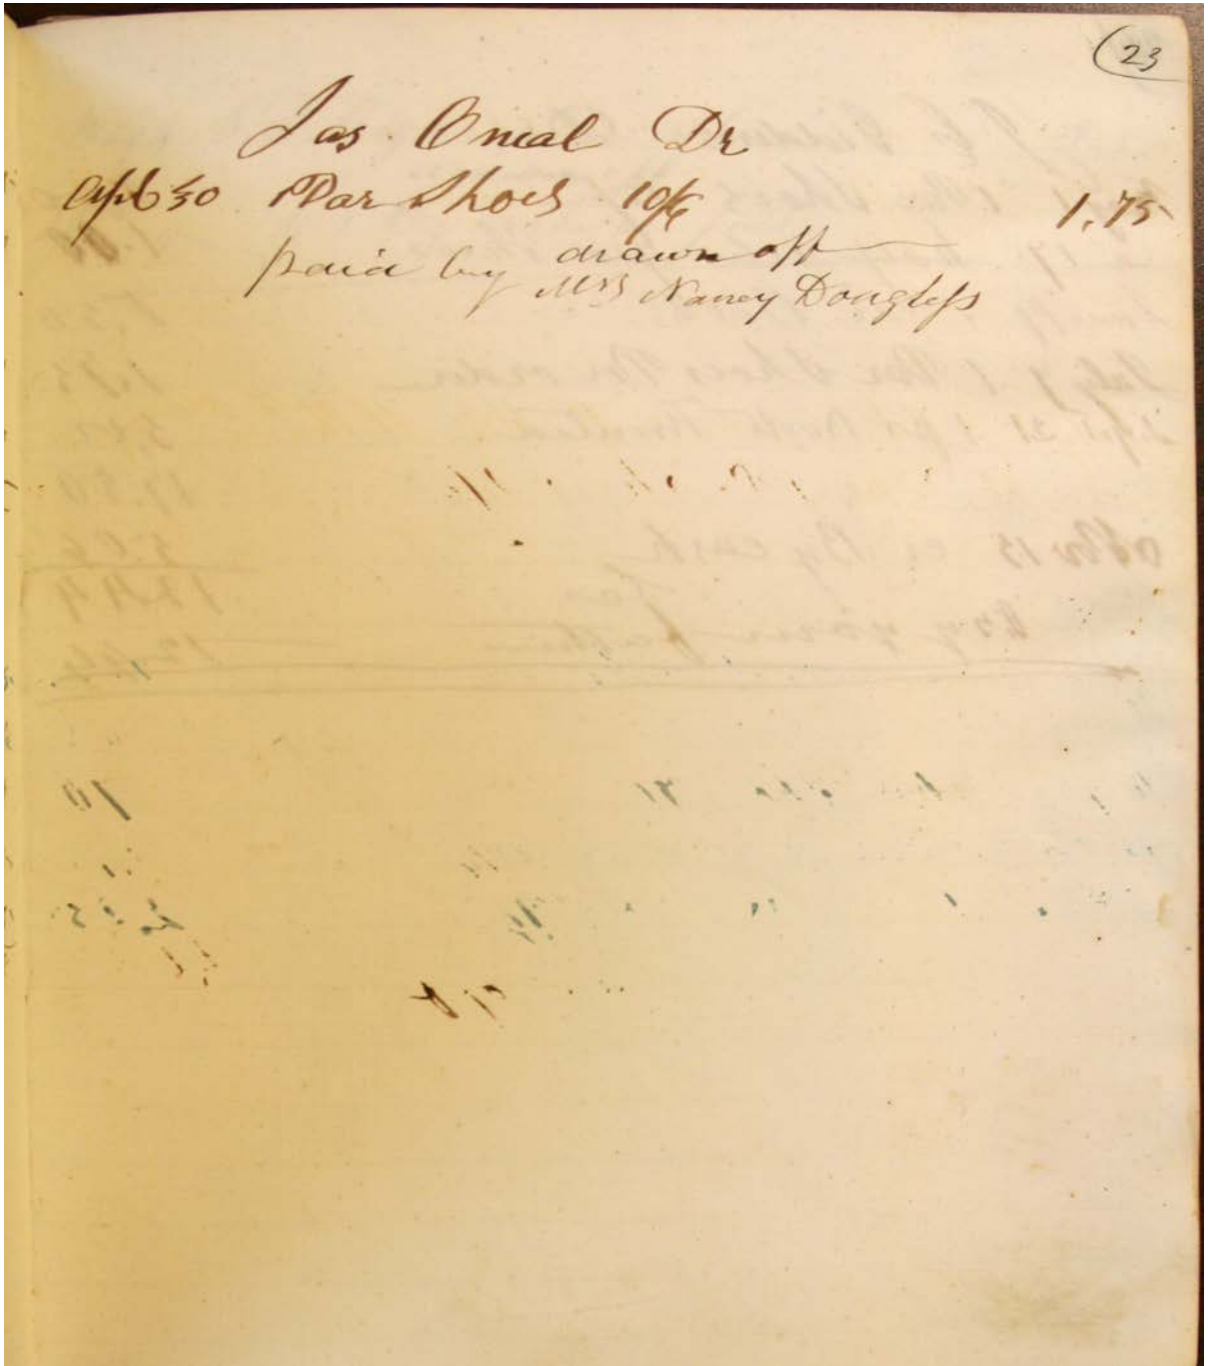 23
Jas. Oneal Dr
Apl 30 Par Shoes 10/6 1.75
drawn off
paid by Mrs Nancy Douglass